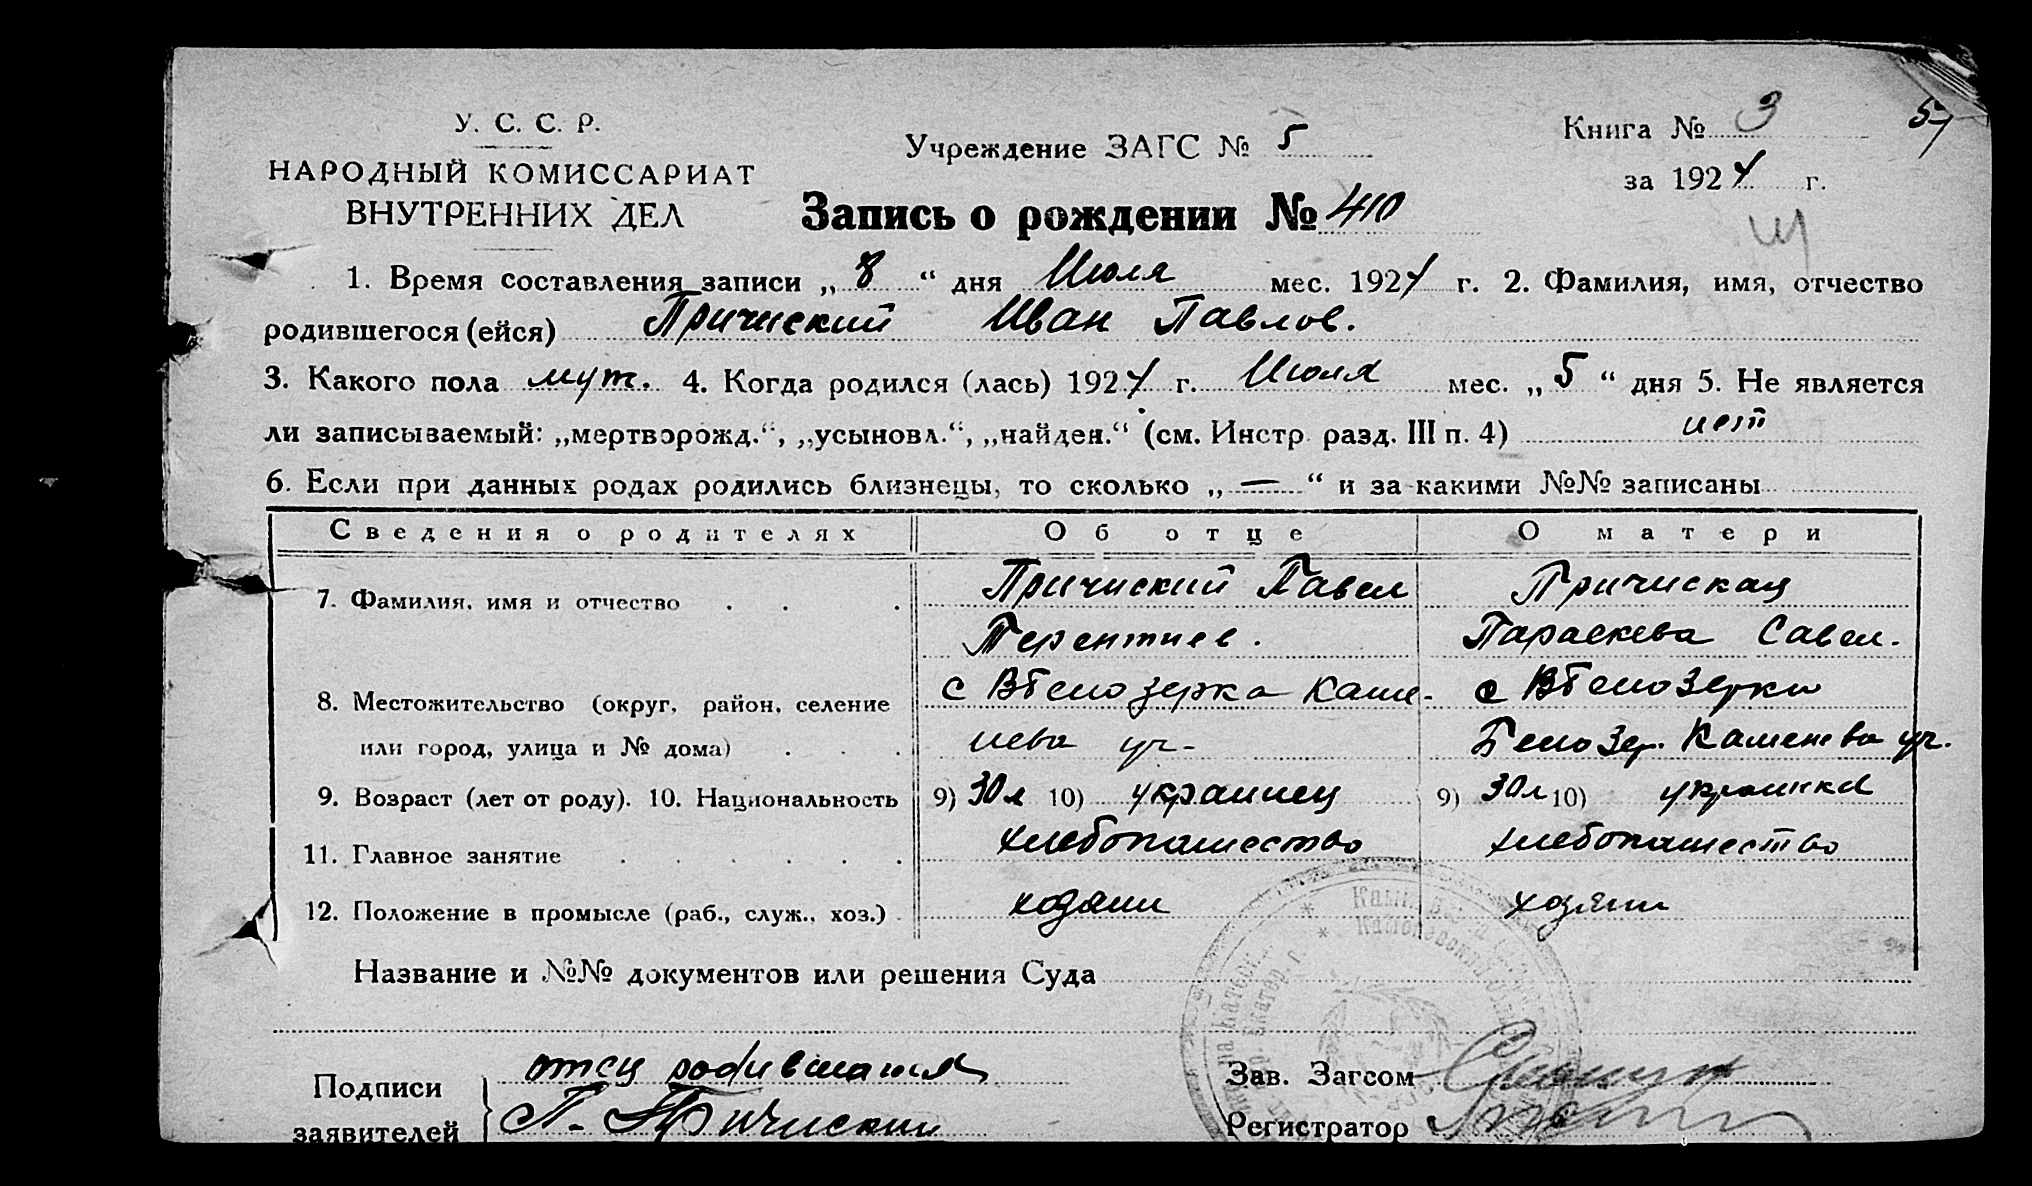 У. С. С. Р.
НАРОДНЫЙ КОМИССАРИАТ
ВНУТРЕННИХ ДЕЛ
Учреждение ЗАГС № 5
Книга № 3
57
за 1924 г.
Запись о рождении № 410
1. Время составления записи „ 8 “ дня Июля мес. 1924 г. 2. Фамилия, имя, отчество
родившегося (ейся) Причиский Иван Павлов.
3. Какого пола муж. 4. Когда родился (лась) 1924 г. Июля мес. „ 5 “ дня 5. Не является
ли записываемый: „мертворожд.“, „усыновл.“, „найден.“ (см. Инстр. разд. III п. 4) нет
6. Если при данных родах родились близнецы, то сколько „ — “ и за какими №№ записаны
Сведения о родителях Об отце О матери
7. Фамилия, имя и отчество Причиский Павел Причиская
Терентиев. Параскева Савел.
8. Местожительство (округ, район, селение с ВБелозерка Каме- с ВБелозерки
или город, улица и № дома) нева уч. Белозер. Каменева уч.
9. Возраст (лет от роду). 10. Национальность 9) 30 л 10) украинец 9) 30 л 10) украинка
11. Главное занятие хлебопашество хлебопашество
12. Положение в промысле (раб., служ., хоз.) хозяин хозяин
Название и №№ документов или решения Суда
Подписи отец родившагося
заявителей П. Причиский
Зав. Загсом
Регистратор